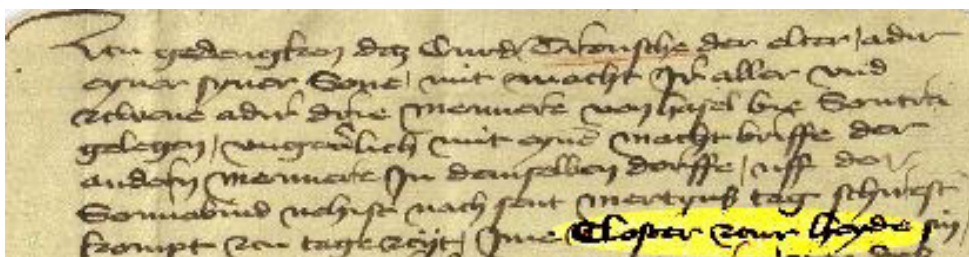 Zcu gedengken daz Curd Trousche der elter, adir
eyner syner Sone, mit macht Jr aller vnd
zcwene adir drie Mennere von hasel bie Sontra
gelegen, vngeuerlich mit eyme macht briffe der
andern Mennere Jn demselben dorffe, uff den
Sonnabind nehist nach sent mertyns tag schirest
kompt zcu tage zcijt, Jme Closter zcur heyde sin,